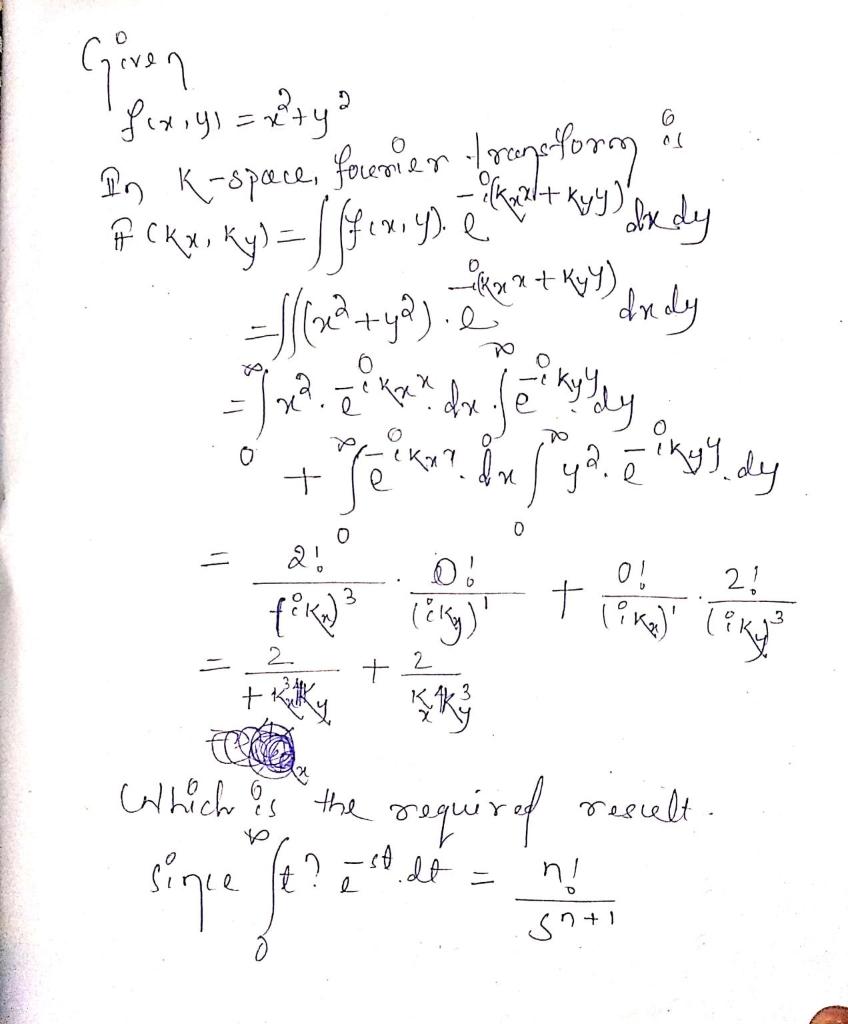 Given
f(x,y) = x²+y²
In K-space, fourier transform is
F(Kx, Ky) = ∫∫f(x,y). e^-i(Kxx+Kyy) dx dy
= ∫∫(x²+y²). e^-i(Kxx+Kyy) dx dy
= ∫₀^∞ x². e^-iKxx. dx. ∫^∞ e^-iKyy. dy
+ ∫₀^∞ e^-iKxx. dx ∫₀^∞ y². e^-iKyy. dy
= 2!/(iKx)³ . 0!/(iKy)¹ + 0!/(iKx)¹ . 2!/(iKy)³
= 2/+Kx³Ky + 2/KxKy³
Which is the required result.
since ∫₀^∞ t? e^-st. dt = n!/s^n+1